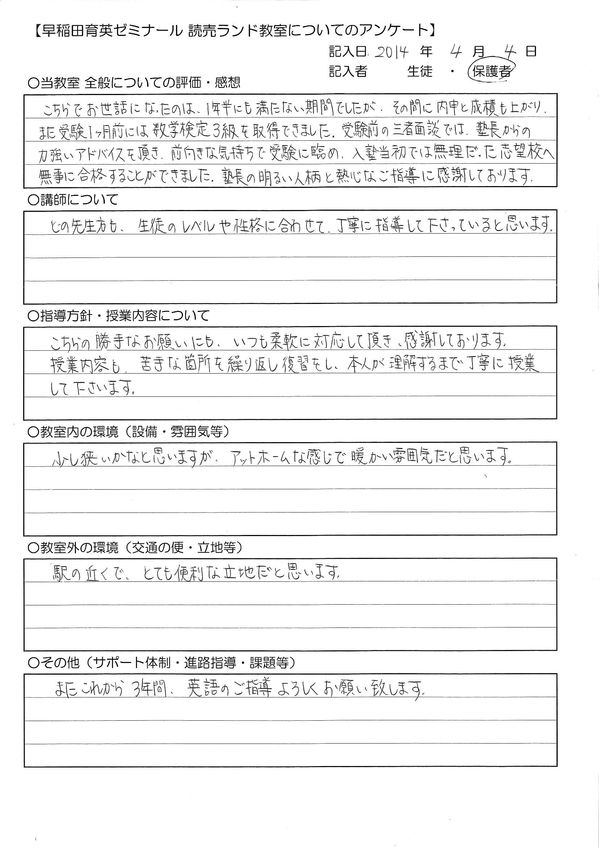 【早稲田育英ゼミナール 読売ランド教室についてのアンケート】
記入日 2014 年 4 月 4 日
記入者 生徒 ・ 保護者
〇当教室 全般についての評価・感想
こちらでお世話になったのは、1年半にも満たない期間でしたが、その間に内申と成績も上がり、
また受験1ヶ月前には数学検定3級を取得できました。受験前の三者面談では、塾長からの
力強いアドバイスを頂き、前向きな気持ちで受験に臨め、入塾当初では無理だった志望校へ
無事に合格することができました。塾長の明るい人柄と熱心なご指導に感謝しております。
〇講師について
どの先生方も、生徒のレベルや性格に合わせて、丁寧に指導して下さっていると思います。
〇指導方針・授業内容について
こちらの勝手なお願いにも、いつも柔軟に対応して頂き、感謝しております。
授業内容も、苦手な箇所を繰り返し復習をし、本人が理解するまで丁寧に授業
して下さいます。
〇教室内の環境（設備・雰囲気等）
少し狭いかなと思いますが、アットホームな感じで暖かい雰囲気だと思います。
〇教室外の環境（交通の便・立地等）
駅の近くで、とても便利な立地だと思います。
〇その他（サポート体制・進路指導・課題等）
またこれから3年間、英語のご指導よろしくお願い致します。